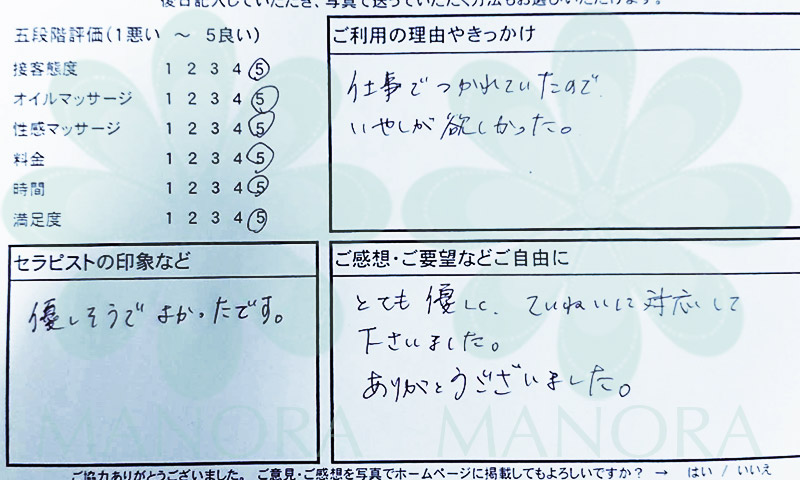 後日記入していただき、写真で送っていただく方法もお選びいただけます。
五段階評価(1悪い ～ 5良い)
接客態度 1 2 3 4 5
オイルマッサージ 1 2 3 4 5
性感マッサージ 1 2 3 4 5
料金 1 2 3 4 5
時間 1 2 3 4 5
満足度 1 2 3 4 5
ご利用の理由やきっかけ
仕事でつかれていたので
いやしが欲しかった。
セラピストの印象など
優しそうでよかったです。
ご感想・ご要望などご自由に
とても優しく、ていねいに対応して
下さいました。
ありがとうございました。
MANORA MANORA
ご協力ありがとうございました。 ご意見・ご感想を写真でホームページに掲載してもよろしいですか？ → はい / いいえ